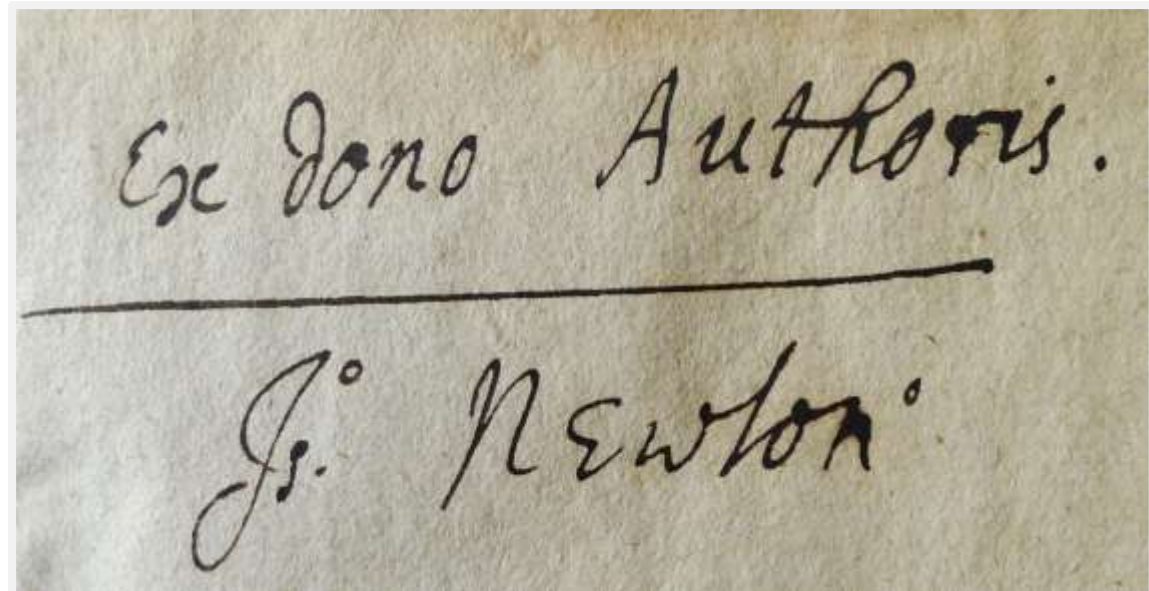 Ex dono Authoris.
Js.° Newton°